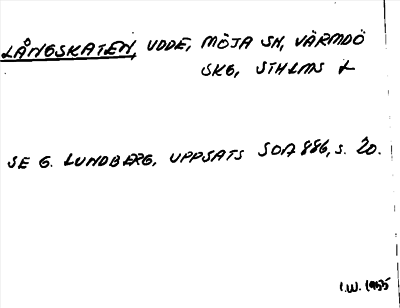 LÅNGSKATEN, UDDE, MÖJA SN, VÄRMDÖ
SKG, STHLMS L
SE G. LUNDBERG, UPPSATS SOA 886, S. 20.
I.W. 1955